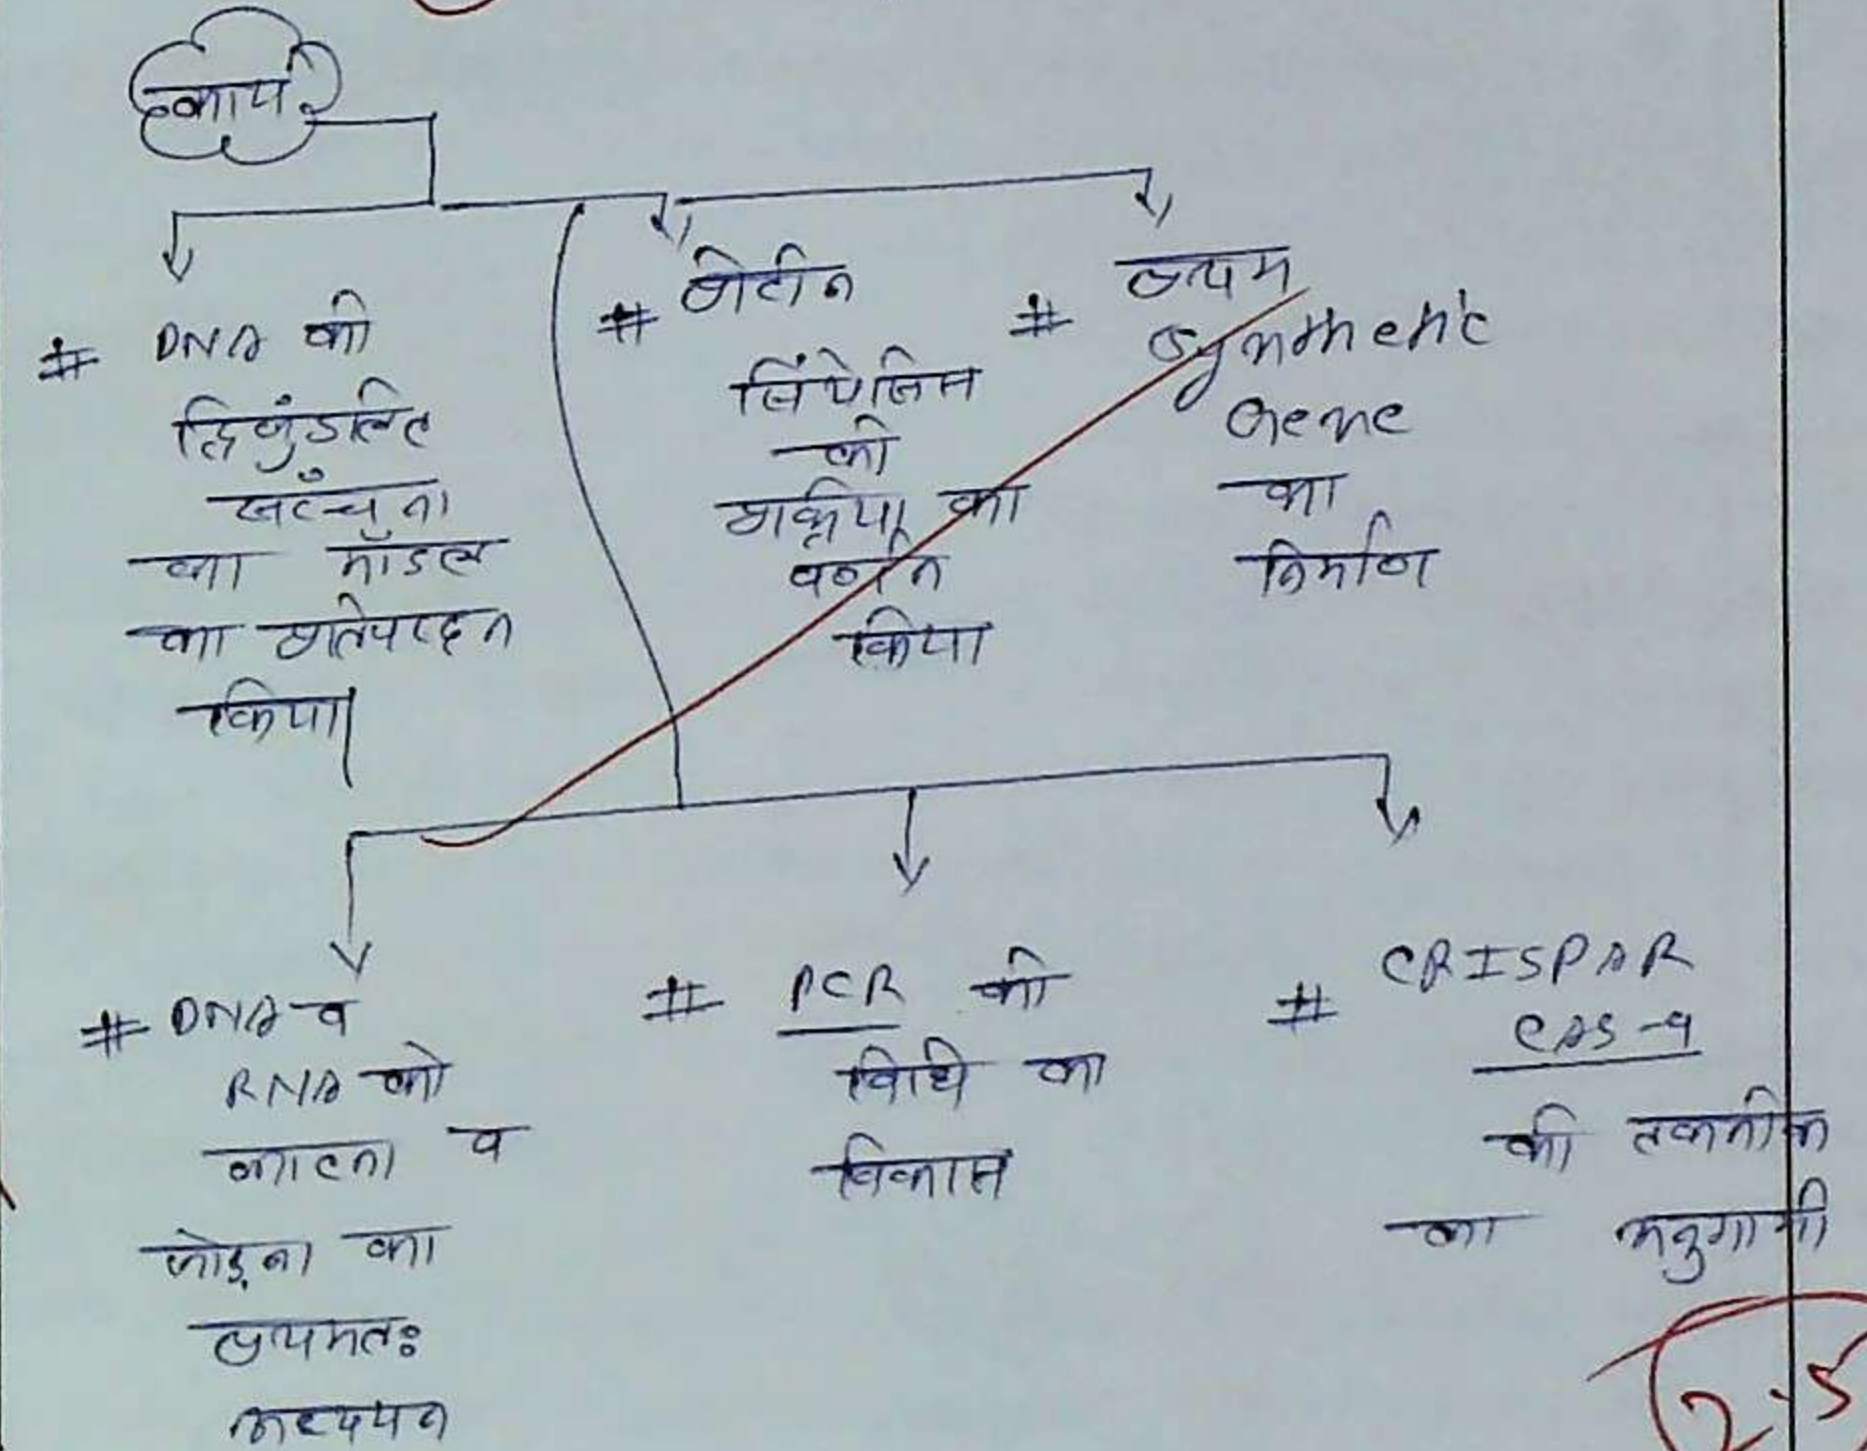 कार्य :
# DNA की
द्विकुंडलित
संरचना
का मॉडल
का प्रतिपादन
किया|
# प्रोटीन
सिंथेसिस
की
प्रक्रिया का
वर्णन
किया
# प्रथम
Synthetic
Gene
का
निर्माण
# DNA व
RNA को
काटना व
जोड़ना का
प्रथमतः
अध्ययन
# PCR की
विधि का
विकास
# CRISPAR
CAS-9
की तकनीक
का अनुगामी
2.5